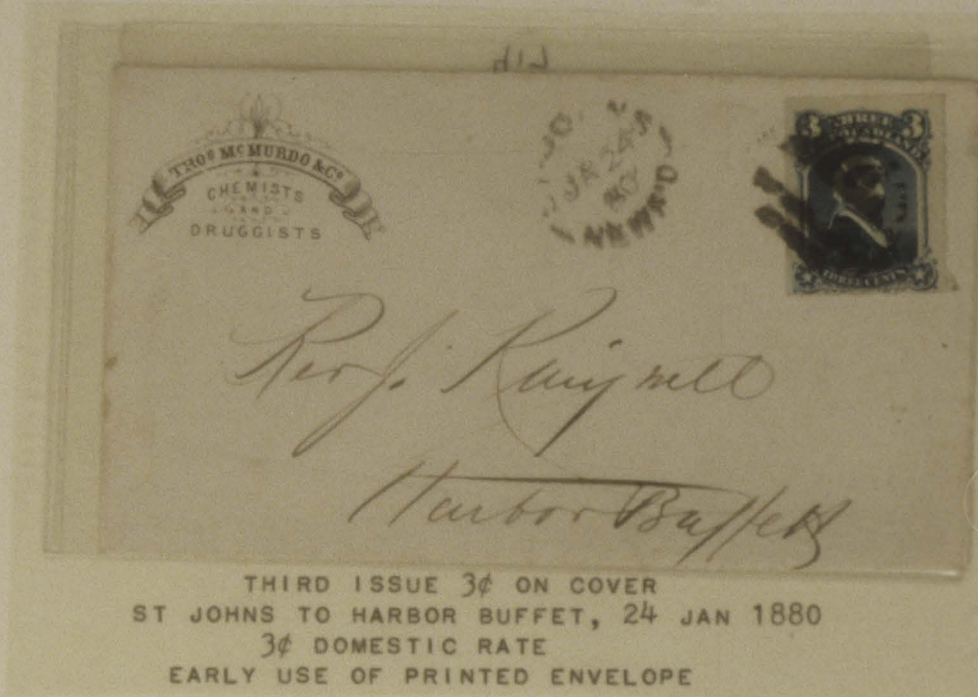 THOS McMURDO & CO
CHEMISTS
AND
DRUGGISTS
JA 24
80
3 THREE 3
THREE CENTS
Rev J. Kingwell
Harbor Buffett
THIRD ISSUE 3¢ ON COVER
ST JOHNS TO HARBOR BUFFET, 24 JAN 1880
3¢ DOMESTIC RATE
EARLY USE OF PRINTED ENVELOPE